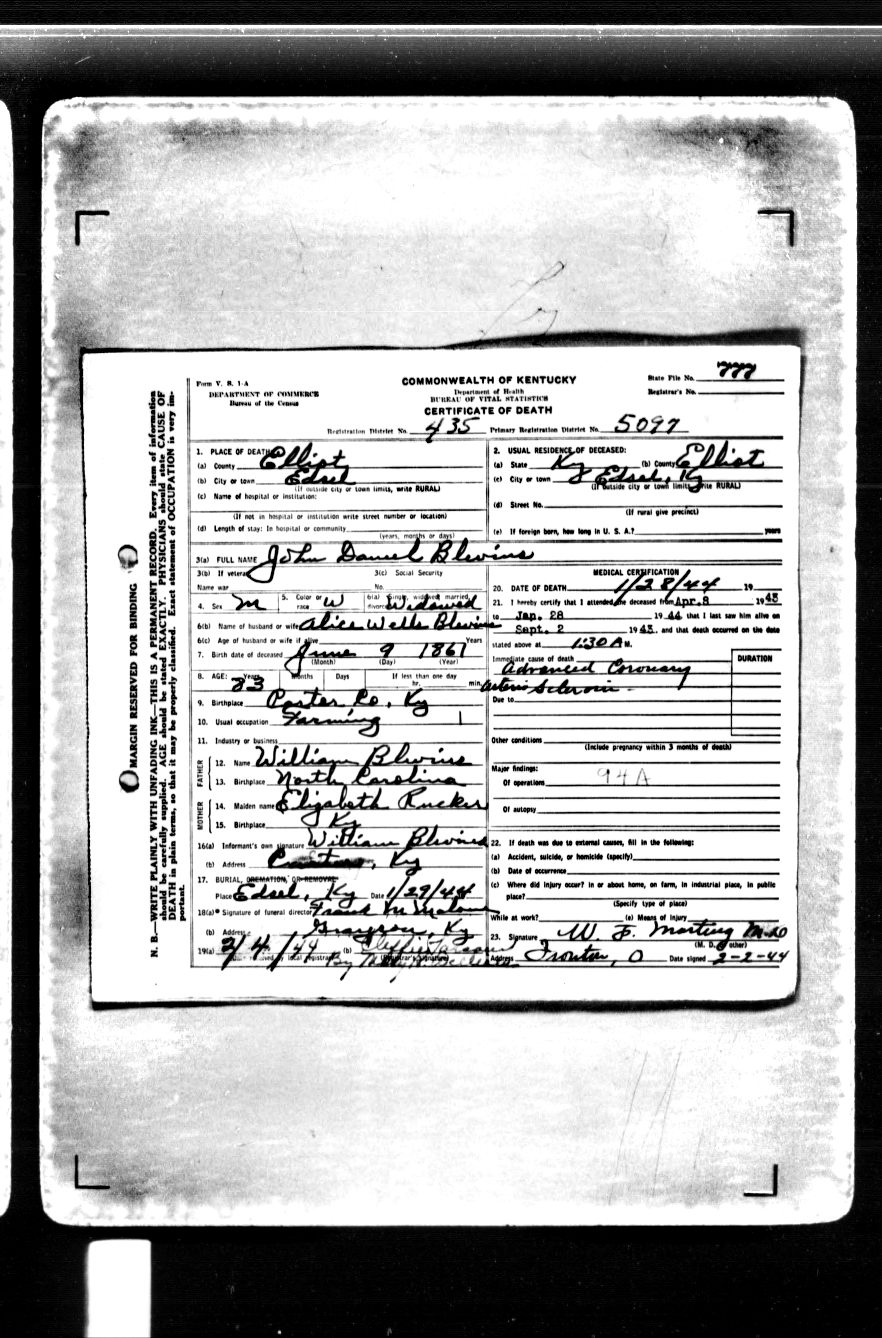 Form V. S. 1-A
DEPARTMENT OF COMMERCE
Bureau of the Census
COMMONWEALTH OF KENTUCKY
Department of Health
BUREAU OF VITAL STATISTICS
CERTIFICATE OF DEATH
State File No. 777
Registrar's No.
Registration District No. 435 Primary Registration District No. 5097
MARGIN RESERVED FOR BINDING
N. B.—WRITE PLAINLY WITH UNFADING INK—THIS IS A PERMANENT RECORD. Every item of information
should be carefully supplied. AGE should be stated EXACTLY. PHYSICIANS should state CAUSE OF
DEATH in plain terms, so that it may be properly classified. Exact statement of OCCUPATION is very im-
portant.
1. PLACE OF DEATH
(a) County Elliot
(b) City or town Edsel
(If outside city or town limits, write RURAL)
(c) Name of hospital or institution:
(If not in hospital or institution write street number or location)
(d) Length of stay: In hospital or community
(years, months or days)
2. USUAL RESIDENCE OF DECEASED:
(a) State Ky (b) County Elliot
(c) City or town Edsel, Ky
(If outside city or town limits write RURAL)
(d) Street No.
(If rural give precinct)
(e) If foreign born, how long in U. S. A.? years
3(a) FULL NAME John Daniel Blevins
3(b) If veteran 3(c) Social Security
Name war No.
4. Sex M 5. Color or race W 6(a) Single, widowed, married, divorced Widowed
6(b) Name of husband or wife Alice Wells Blevins
6(c) Age of husband or wife if alive Years
7. Birth date of deceased June 9 1861
(Month) (Day) (Year)
8. AGE: Years Months Days If less than one day
83 hr. min.
9. Birthplace Carter Co, Ky
10. Usual occupation Farming
11. Industry or business
FATHER
12. Name William Blevins
13. Birthplace North Carolina
MOTHER
14. Maiden name Elizabeth Rucker
15. Birthplace Ky
16(a) Informant's own signature William Blevins
(b) Address , Ky
17. BURIAL, CREMATION, OR REMOVAL
Place Edsel, Ky Date 1/29/44
18(a) Signature of funeral director Frank M Malone
(b) Address Grayson, Ky
19(a) 2/4/44 (b)
received by local registrar (Registrar's signature)
By
MEDICAL CERTIFICATION
20. DATE OF DEATH 1/28/44 19
21. I hereby certify that I attended the deceased from Apr. 8 1943
to Jan. 28 1944 that I last saw him alive on
Sept. 2 1943, and that death occurred on the date
stated above at 1:30 A M.
Immediate cause of death DURATION
Advanced Coronary
Arterio Sclerosis
Due to
Other conditions
(Include pregnancy within 3 months of death)
Major findings: 94A
Of operations
Of autopsy
22. If death was due to external causes, fill in the following:
(a) Accident, suicide, or homicide (specify)
(b) Date of occurrence
(c) Where did injury occur? in or about home, on farm, in industrial place, in public
place?
(Specify type of place)
While at work? (e) Means of injury
23. Signature W. F. Marting M.D
(M. D. or other)
Address Ironton, O Date signed 2-2-44